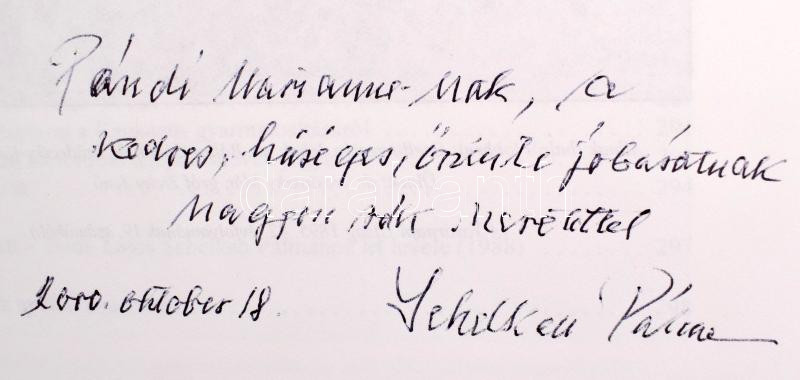 Pándi Marianne-nak, a
kedves, hűséges, őszinte jóbarátnak
nagyon sok szeretettel
2000. október 18.
Schelken Pálma
darabanth
297